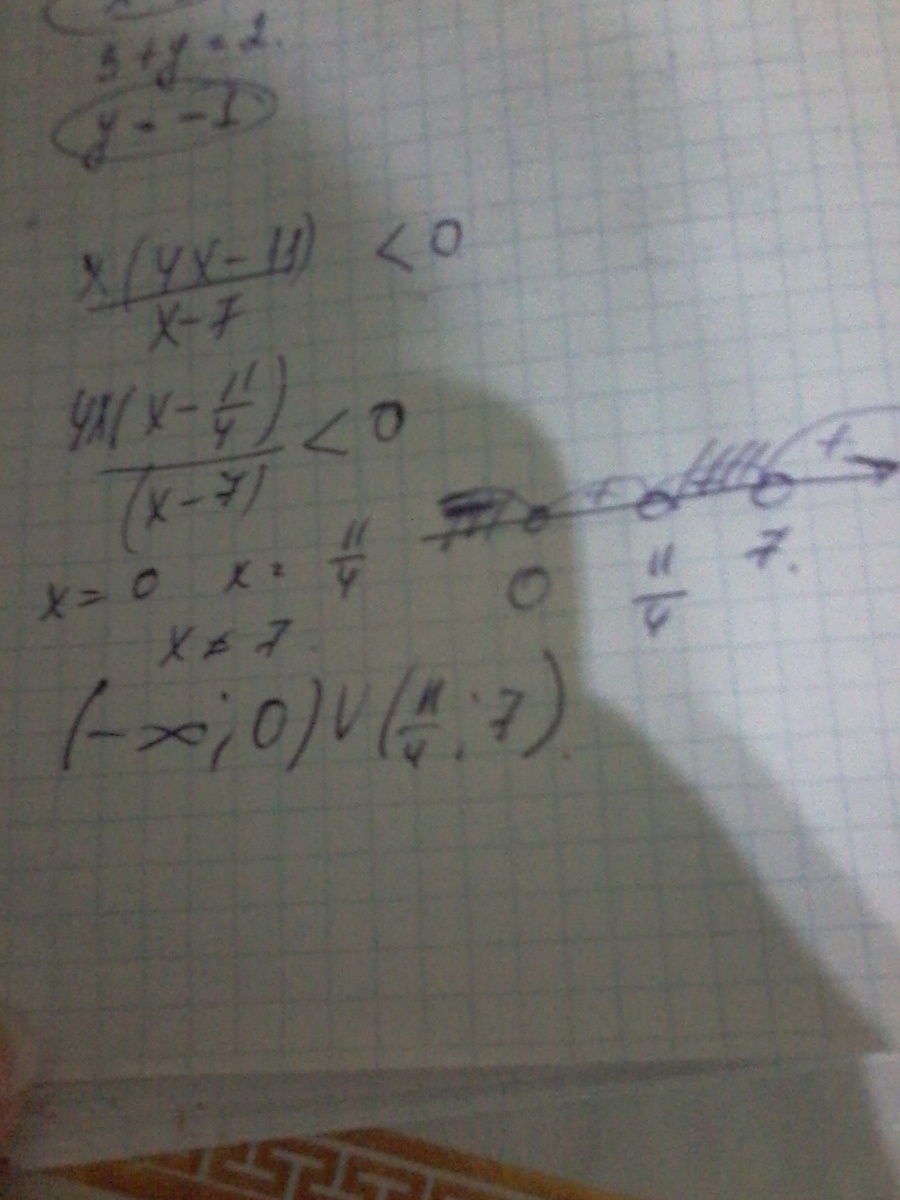 3 + y = 2.
y = -1
x(4x - 11) / x - 7 < 0
4x(x - 11/4) / (x - 7) < 0
+ +
0 11/4 7.
x = 0 x = 11/4
x ≠ 7.
(-∞; 0) ∪ (11/4; 7).